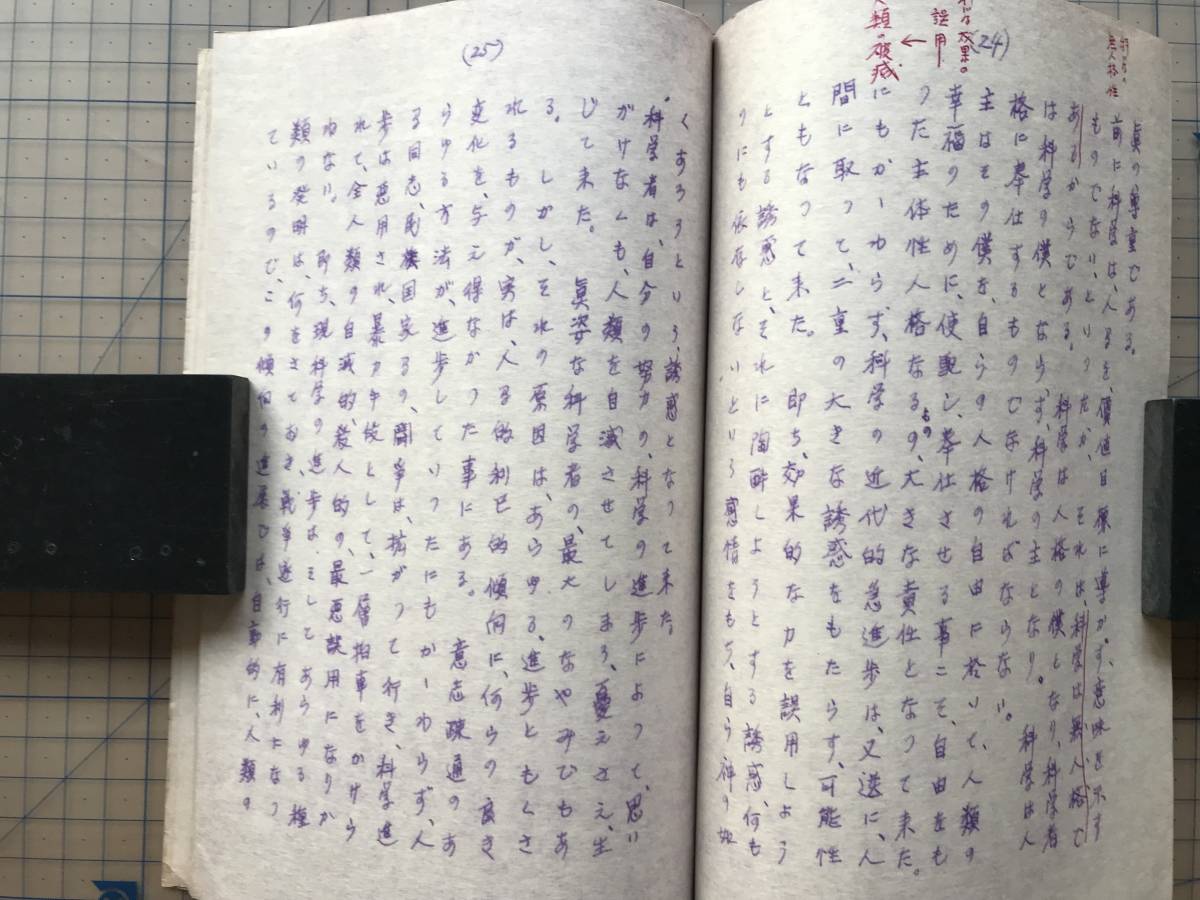 (24)
眞の尊重である。
前に科学は、人るを、價値目願に導かず、意味を示す
ものでない、といったが、それは、科学は無人格で
あるからである。科学は人格の僕となり、科学者
は科学の僕とならず、科学の主となり。科学は人
格に奉仕するものでなければならない。
主はその僕を、自らの人格の自由に於いて、人類の
幸福のために、使配し、奉仕させる事こそ、自由をも
った主体性人格なるもの、大きな責任となって来た。
にもかゝわらず、科学の近代的急進歩は、又逆に、人
間に取って、二重の大きな誘惑をもたらす、可能性
ともなって来た。即ち、効果的な力を誤用しよう
とする誘惑と、それに陶酔しようとする誘惑、何も
のにも依存しないという感情をもち、自ら神の如
誤用
人類の破滅
無人格性
(25)
くあろうという、誘惑となって来た。
科学者は、自分の努力の、科学の進歩によって、思い
がけなくも、人類を自滅させてしまう、憂えさえ、生
じて来た。眞姿な科学者の、最大のなやみでもあ
る。しかし、それの原因は、あらゆる、進歩ともくさ
れるものが、実は、人る的利己的傾向に、何らの良き
変化を、与え得なかった事にある。意志疎通のあ
らゆる方法が、進歩していったにもかゝわらず、人
る同志、民族国家るの、闘争は、拡がって行き、科学進
歩は悪用され、暴力手段として、一層拍車をかけら
れて、全人類の自滅的、殺人的の、最悪誤用になりか
ねない。即ち、現科学の進歩は、そしてあらゆる種
類の発明は、何をさておき、戦争遂行に有利になっ
ているので、この傾向の進展では、自動的に、人類の